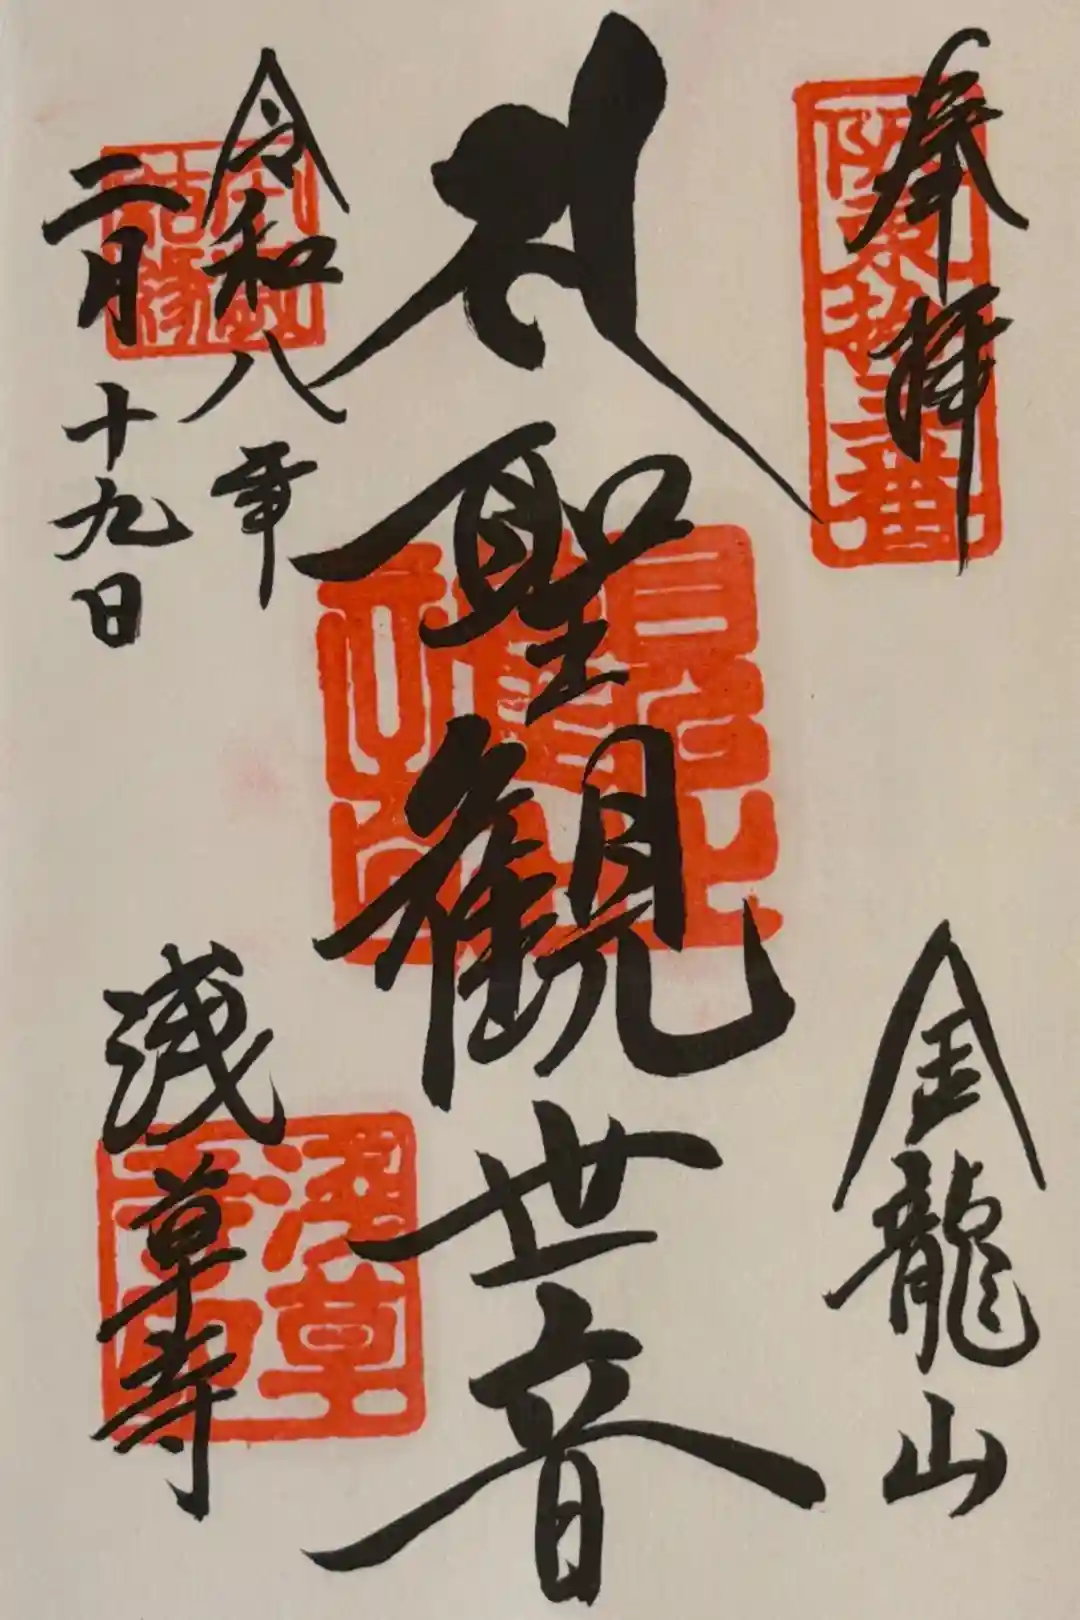 奉拝
阪東拾三番
金龍山
聖観世音
令和八年
二月十九日
浅草寺